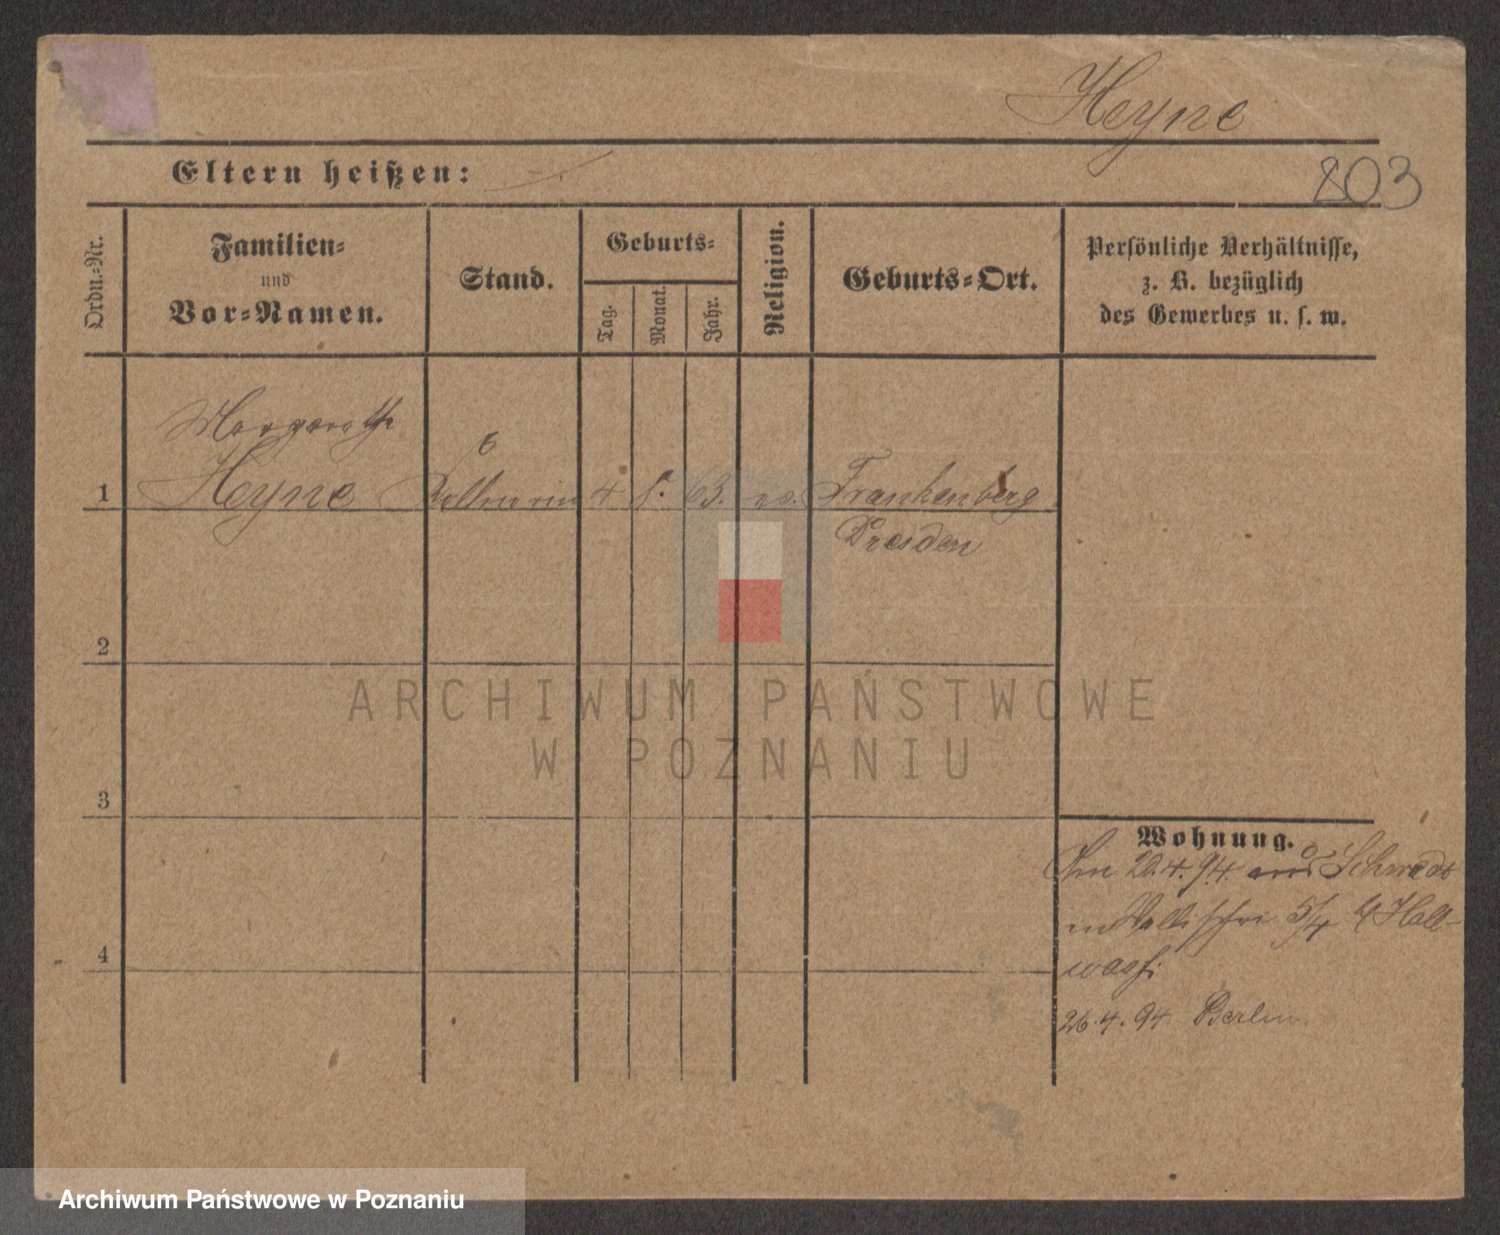 Heyne
Eltern heißen: -.
803
Ordn.-Nr.
Familien-
und
Vor-Namen.
Stand.
Geburts-
Tag.
Monat.
Jahr.
Religion.
Geburts-Ort.
Persönliche Verhältnisse,
z. B. bezüglich
des Gewerbes u. s. w.
Margarethe
1 Heyne Kellnerin 4 8. 63. ev. Frankenberg
Dresden
2
ARCHIWUM PAŃSTWOWE
W POZNANIU
3
Wohnung.
20.4.94. aus Schwedt
5/4
4
26.4.94 Berlin
Archiwum Państwowe w Poznaniu